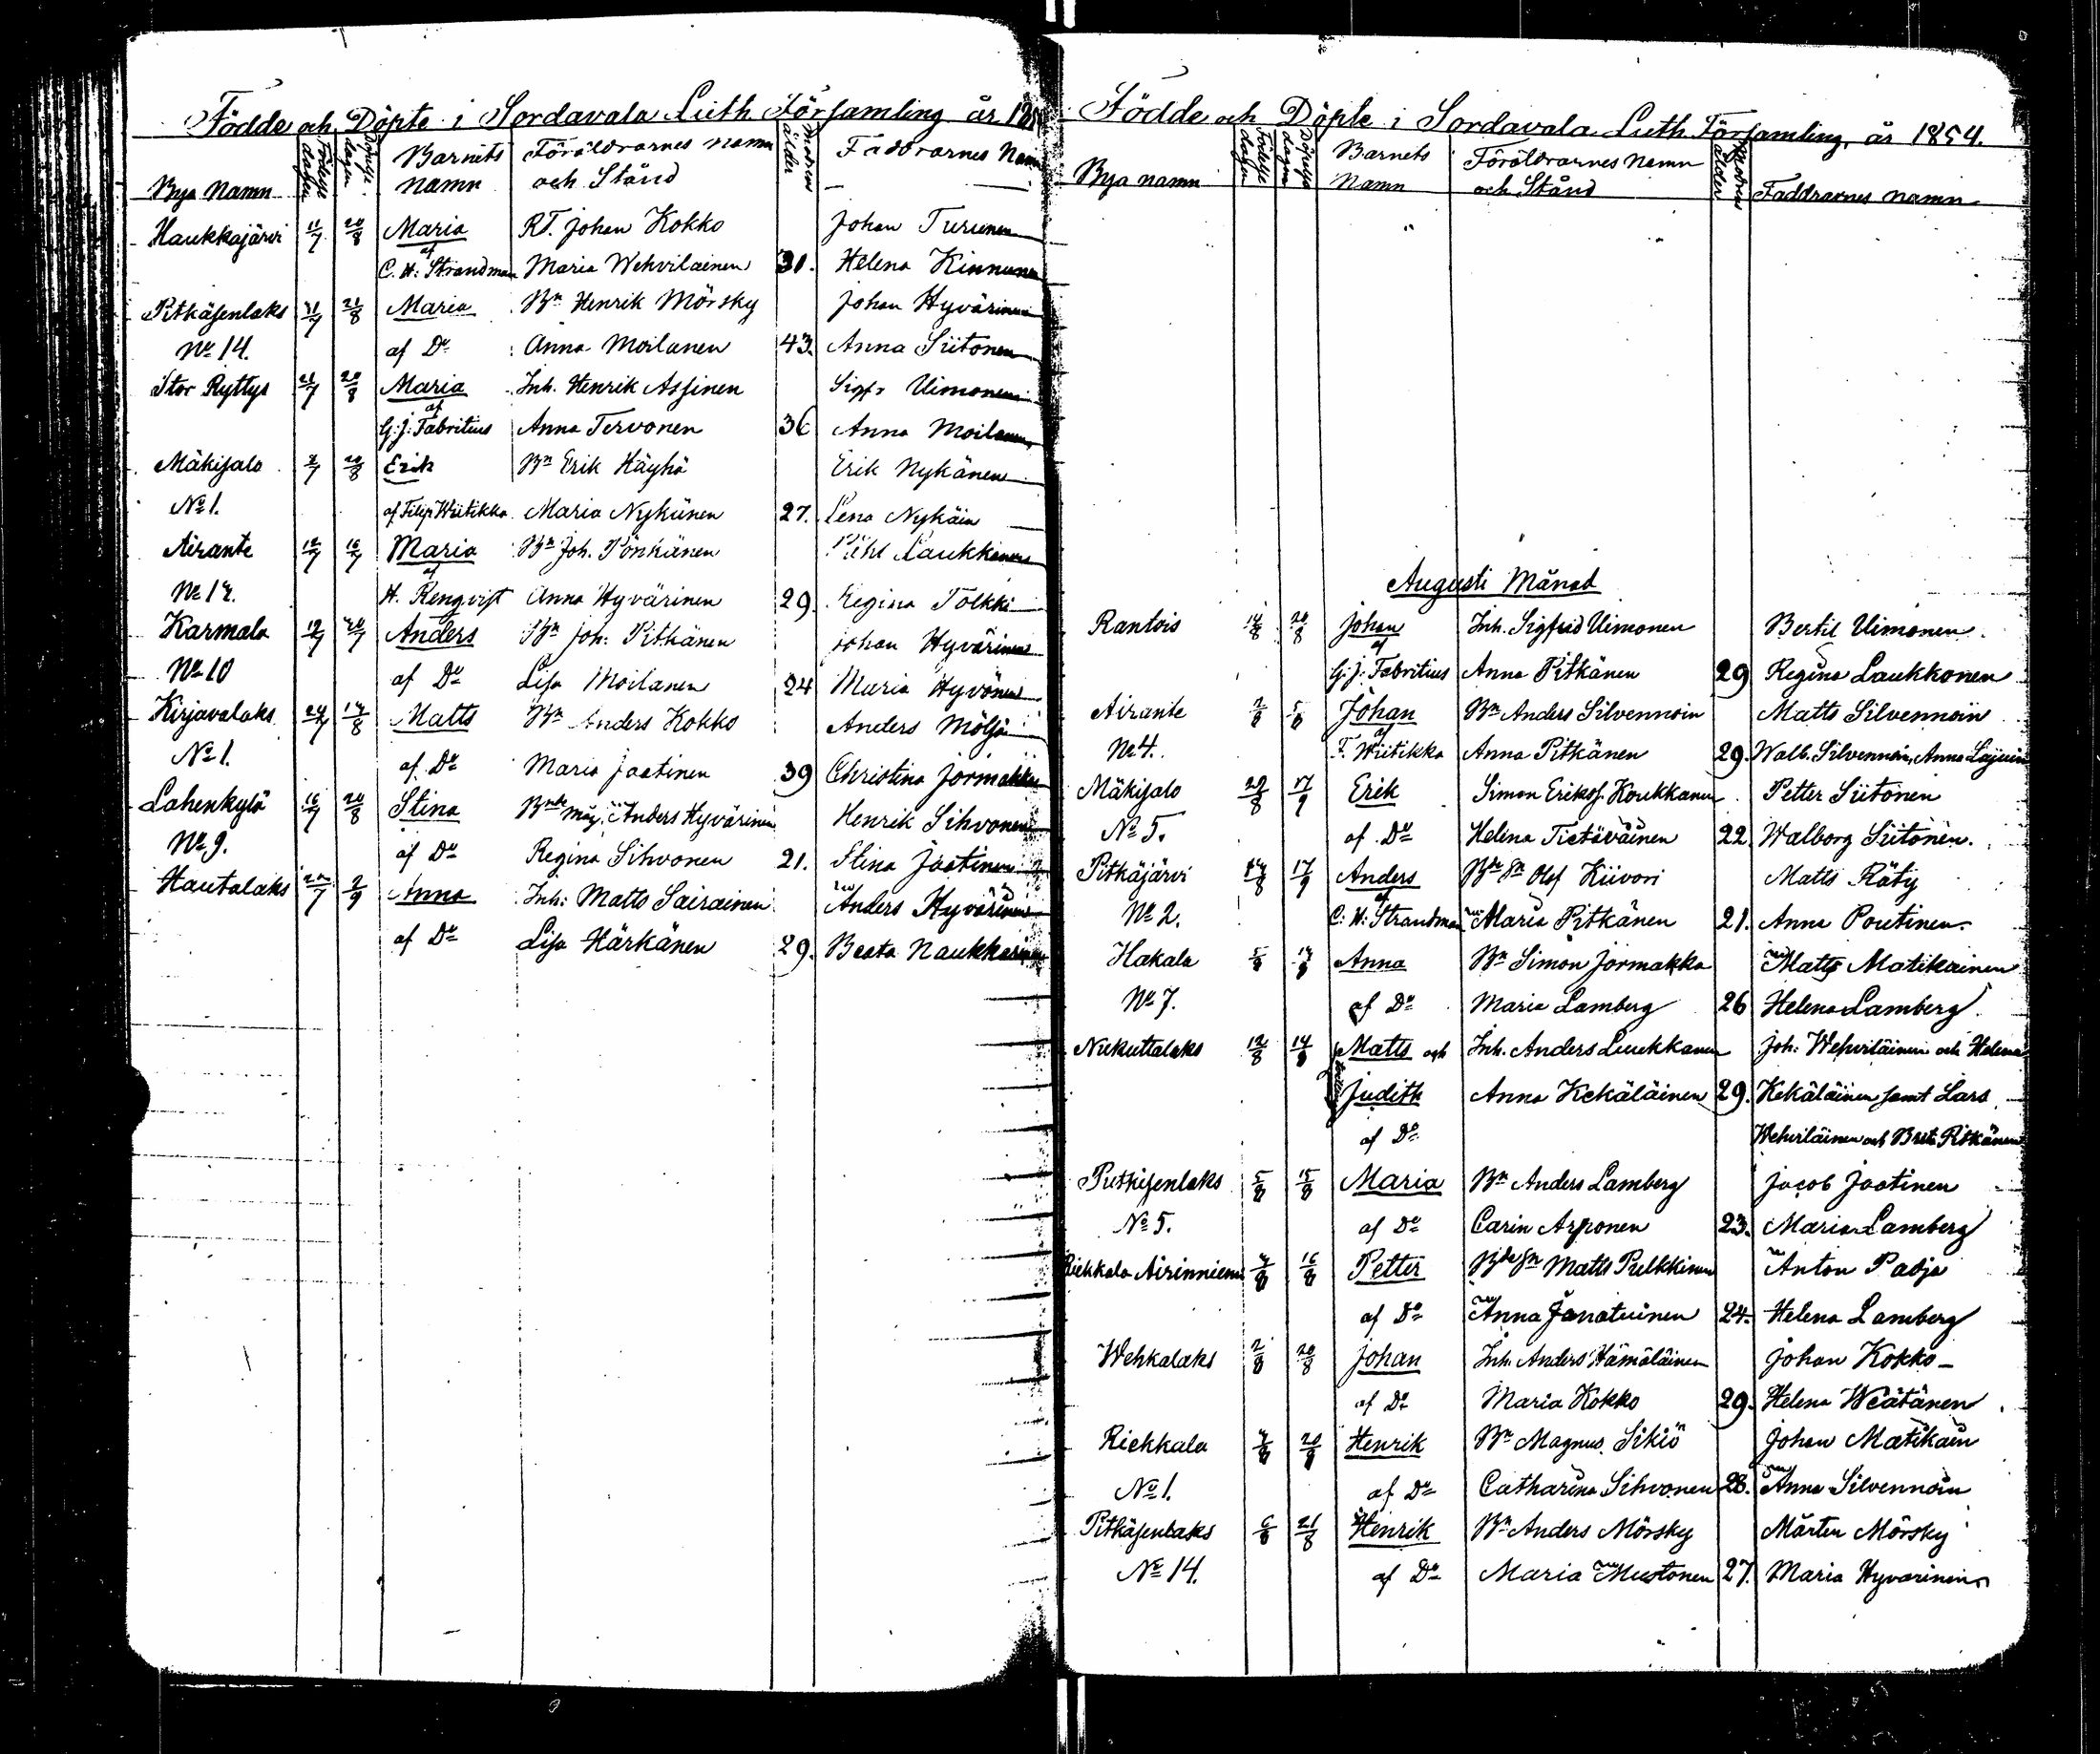 Födde och Döpte i Sordavala Luth Församling år 185
Bya Namn Födelse dagen Döpelse dagen Barnets namn Föräldrarnes namn och Stånd Modrens ålder Faddrarnes Namn
Haukkajärvi 11/7 20/8 Maria RT. Johan Kokko Johan Turunen
af C. H: Strandman Maria Wehvilainen 31. Helena Kinnunen
Pitkäjenlaks 31/7 21/8 Maria Bn Henrik Mörsky Johan Hyvärinen
No 14. af Do Anna Moilanen 43. Anna Siitonen
Stor Ryttys 21/7 20/8 Maria Inh. Henrik Assinen Sigfr Uimonen
af G: J: Fabritius Anna Tervonen 36 Anna Moilanen
Mäkisalo 2/7 20/8 Erik Bn Erik Käyhö Erik Nykänen
No 1. af Filip Wiitikka Maria Nykänen 27. Lena Nykäin
Airante 12/7 16/7 Maria Bn Joh. Pönkänen Laukkanen
af H. Renqvist Anna Hyvärinen 29. Regina Tolkki
Karmala 19/7 20/7 Anders Bn Joh: Pitkänen Johan Hyvärinen
No 10 af Do Lisa Moilanen 24 Maria Hyvönen
Kirjavalaks 24/7 14/8 Matts Bn Anders Kokko Anders Mölsä
No 1. af Do Maria Jaatinen 39 Christina Jormakka
Lahenkylä 16/7 20/8 Stina Bnde måg: Anders Hyvärinen Henrik Sihvonen
No 9. af Do Regina Sihvonen 21. Stina Jaatinen
Hautalaks 22/7 2/9 Anna Inh: Matts Sairainen Anders Hyvärinen
af Do Lisa Härkänen 29. Beata Naukkarinen
Födde och Döpte i Sordavala Luth. Församling, år 1854.
Bya namn Födelse dagen Döpelse dagen Barnets Namn Föräldrarnes Namn och Stånd Modrens ålder Faddrarnes namn
Augusti Månad
Rantois 14/8 20/8 Johan Inh. Sigfrid Uimonen Bertil Uimonen
af G: J: Fabritius Anna Pitkänen 29 Regina Laukkonen
Airante 2/8 5/8 Johan Bn Anders Silvennoin Matts Silvennoin
No 4. af F. Wiitikka Anna Pitkänen 29. Walb. Silvennoin, Anna
Mäkisalo 29/8 17/9 Erik Simon Eriksſ. Koukkanen Petter Siitonen
No 5. af Do Helena Tietäväinen 22. Walborg Siitonen.
Pitkäjärvi 14/8 17/9 Anders Bde Sn Olof Kiivori Matts Räty
No 2. af C: H: Strandman Maria Pitkänen 21. Anna Poutinen.
Hakala 5/8 14/8 Anna Bn Simon Jormakka Matts Matikainen
No 7. af Do Maria Lamberg 26 Helena Lamberg
Nukuttalaks 12/8 14/8 Matts och Inh. Anders Luukkanen Joh: Wehviläinen och Helena
Judith Anna Kekäläinen 29. Kekäläinen samt Lars
af Do Wehviläinen och Brita Pitkänen
Putkisenlaks 5/8 15/8 Maria Bn Anders Lamberg Jacob Jaatinen
No 5. af Do Carin Arponen 23. Maria Lamberg
Riekkala Airinniemi 4/8 16/8 Petter Bde Sn Matts Pulkkinen Anton Padja
af Do Anna Janatuinen 24. Helena Lamberg
Wehkalaks 2/8 20/8 Johan Inh. Anders Hämäläinen Johan Kokko
af Do Maria Kokko 29. Helena Wäätänen
Riekkala 4/8 20/8 Henrik Bn Magnus Sikiö Johan Matikain
No 1. af Do Catharina Sihvonen 28. Anna Silvennoin
Pitkäjenlaks 6/8 21/8 Henrik Bn Anders Mörsky Mårten Mörsky
No 14. af Do Maria Mustonen 27. Maria Hyvärinen